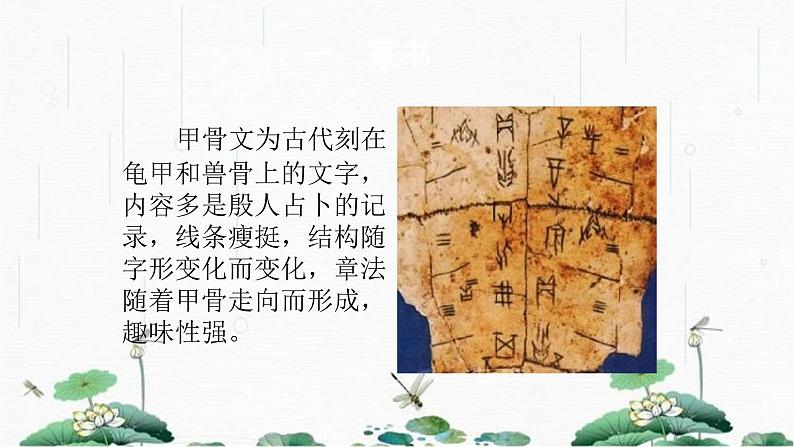 一、篆书
甲骨文为古代刻在
龟甲和兽骨上的文字，
内容多是殷人占卜的记
录，线条瘦挺，结构随
字形变化而变化，章法
随着甲骨走向而形成，
趣味性强。